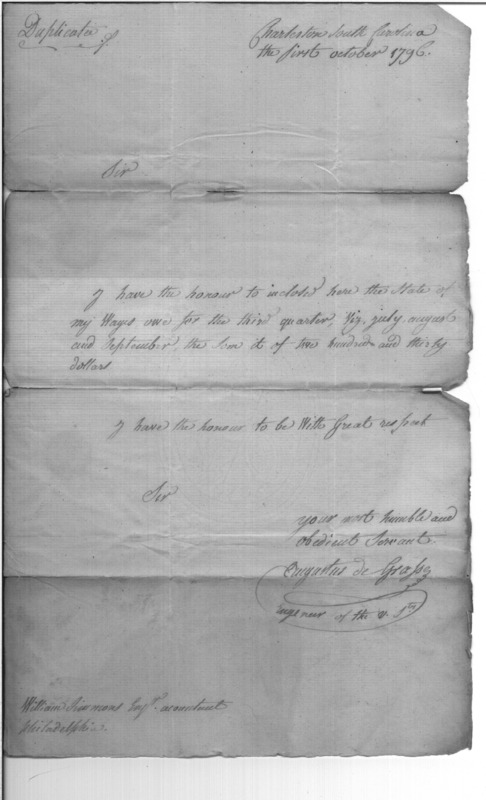 Duplicate of
Charleston South Carolina
the first october 1796.
Sir
I have the honour to inclosed here the State of
my Wages owe for the third quarter, Viz, july august
and September the Som it of two hundred and thirty
dollars
I have the honour to be With Great respect
Sir
your most humble and
obedient Servant
augustus de Grasse
engeneer of the u. St
William Simmons Esqr. acountant
Philadelphia.